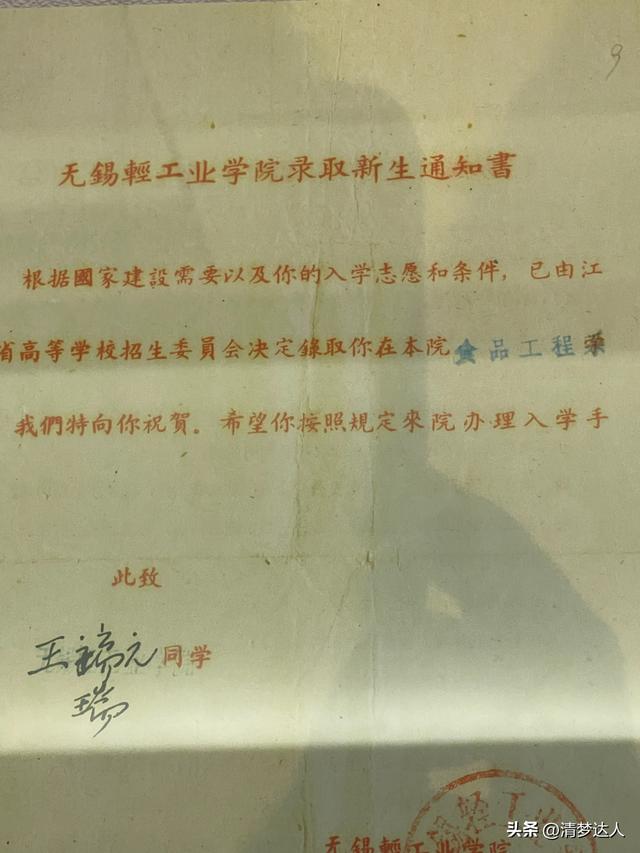 9
无錫輕工业学院录取新生通知書
根据國家建設需要以及你的入学志愿和条件，已由江
省高等学校招生委員会决定錄取你在本院食品工程系
我們特向你祝賀。希望你按照規定來院办理入学手
此致
王瑞元同学
瑞
无錫輕工业学院
头条 @清梦达人